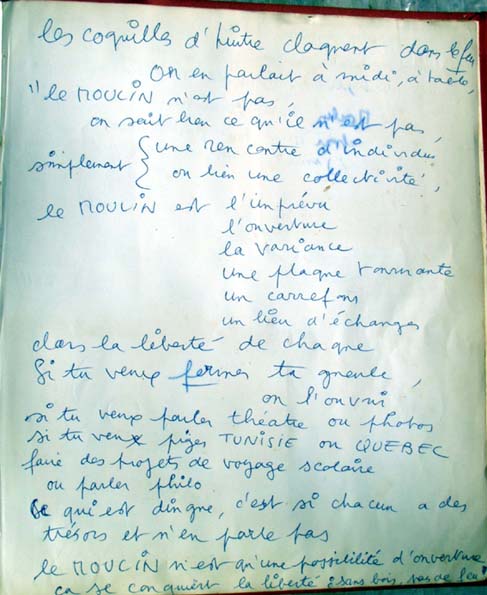 les coquilles d'huitre claquent dans le feu
On en parlait à midi, à table,
"le MOULIN n'est pas,
on sait bien ce qu'il n'est pas,
simplement { une rencontre d'individus
ou bien une collectivité,
le MOULIN est l'imprévu
l'ouverture
la variance
une plaque tournante
un carrefour
un lieu d'échanges
dans la liberté de chaque
Si tu veux fermer ta gueule,
on l'ouvrir
si tu veux parler théatre ou photos
si tu veux piger TUNISIE ou QUEBEC
faire des projets de voyage scolaire
ou parler philo
Ce qui est dingue, c'est si chacun a des
trésors et n'en parle pas
le MOULIN n'est qu'une possibilité d'ouverture
ça se conquiert la liberté : sans bois, pas de feu